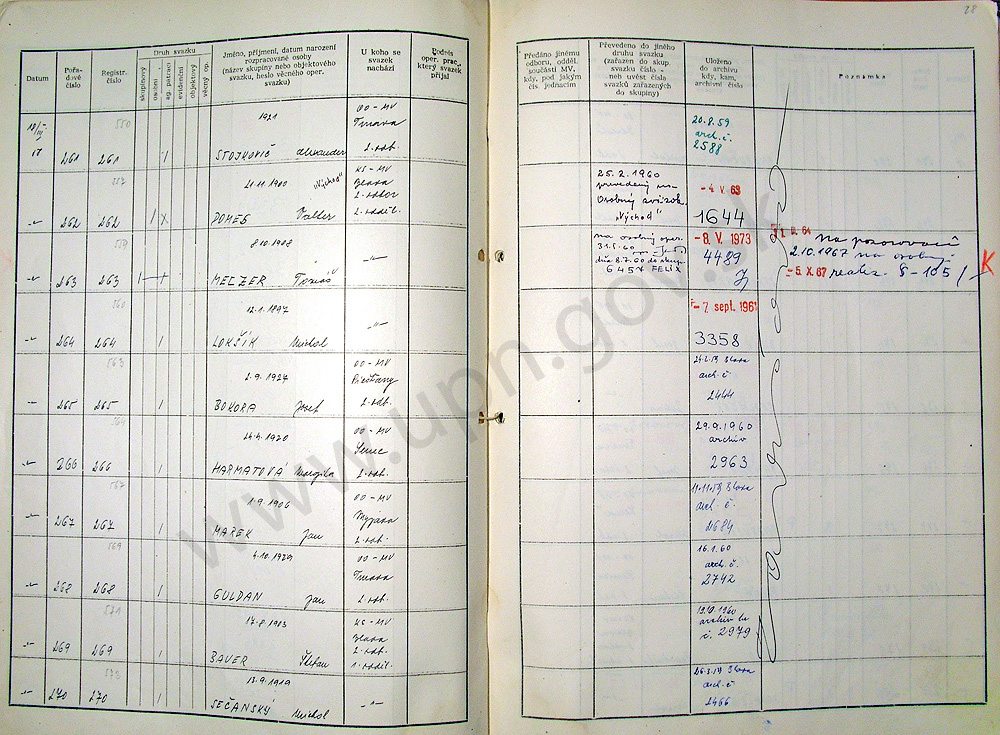 28
Datum
Pořa-
dové
číslo
Registr.
číslo
Druh svazku
skupinový
osobní
ag. pátrací
evidenční
objektový
věcný op.
Jméno, příjmení, datum narození
rozpracované osoby
(název skupiny nebo objektového
svazku, heslo věcného oper.
svazku)
U koho se
svazek
nachází
Podpis
oper. prac.,
který svazek
přijal
Předáno jinému
odboru, odděl.
součásti MV,
kdy, pod jakým
čís. jednacím
Převedeno do jiného
druhu svazku
(zařazen do skup.
svazku číslo -
neb uvést čísla
svazků zařazených
do skupiny)
Uloženo
do archivu
kdy, kam,
archivní číslo
Poznámka
550
1921
261 261 STOJKOVIČ Alexander
OO - MV
Trnava
2. odb.
20.8.59
arch. č.
2588
557
21.11.1900 „Východ"
262 262 DOMES Valter
KS - MV
Blava
2. odbor
2. oddel.
25.2.1960
prevedený na
Osobný zväzok
„Východ"
- 4 V. 63
1644
559
8.10.1908
263 263 MELZER Tomáš
na osobný oper.
31.5.60
dňa 8.7.60 do skup.
6457 FELIX
- 8. V. 1973
4489
na pozorovací
2.10.1967 na osobný
- 5. X. 67 realiz. S-105/
K
560
12.1.1897
264 264 LOKŠÍK Michal
- 7. sept. 1961
3358
563
2.9.1927
265 265 BOKORA Jozef
OO - MV
Piešťany
2. odb.
24.2.59 Blava
arch. č.
2444
564
24.4.1920
266 266 MARMATOVÁ Margita
OO - MV
Senec
2. odb.
29.9.1960
archív
2963
567
1.9.1906
267 267 MAREK Jan
OO - MV
Myjava
2. odb.
11.11.59 Blava
arch. č.
2684
569
4.10.1929
268 268 GULDAN Jan
OO - MV
Trnava
2. odb.
16.1.60
arch. č.
2742
571
17.8.1913
269 269 BAUER Štefan
KS - MV
Blava
2. odb.
1. oddel.
19.10.1960
č. 2979
573
13.9.1919
270 270 SEČANSKÝ Michal
26.3.59 Blava
arch. č.
2466
www.upn.gov.sk